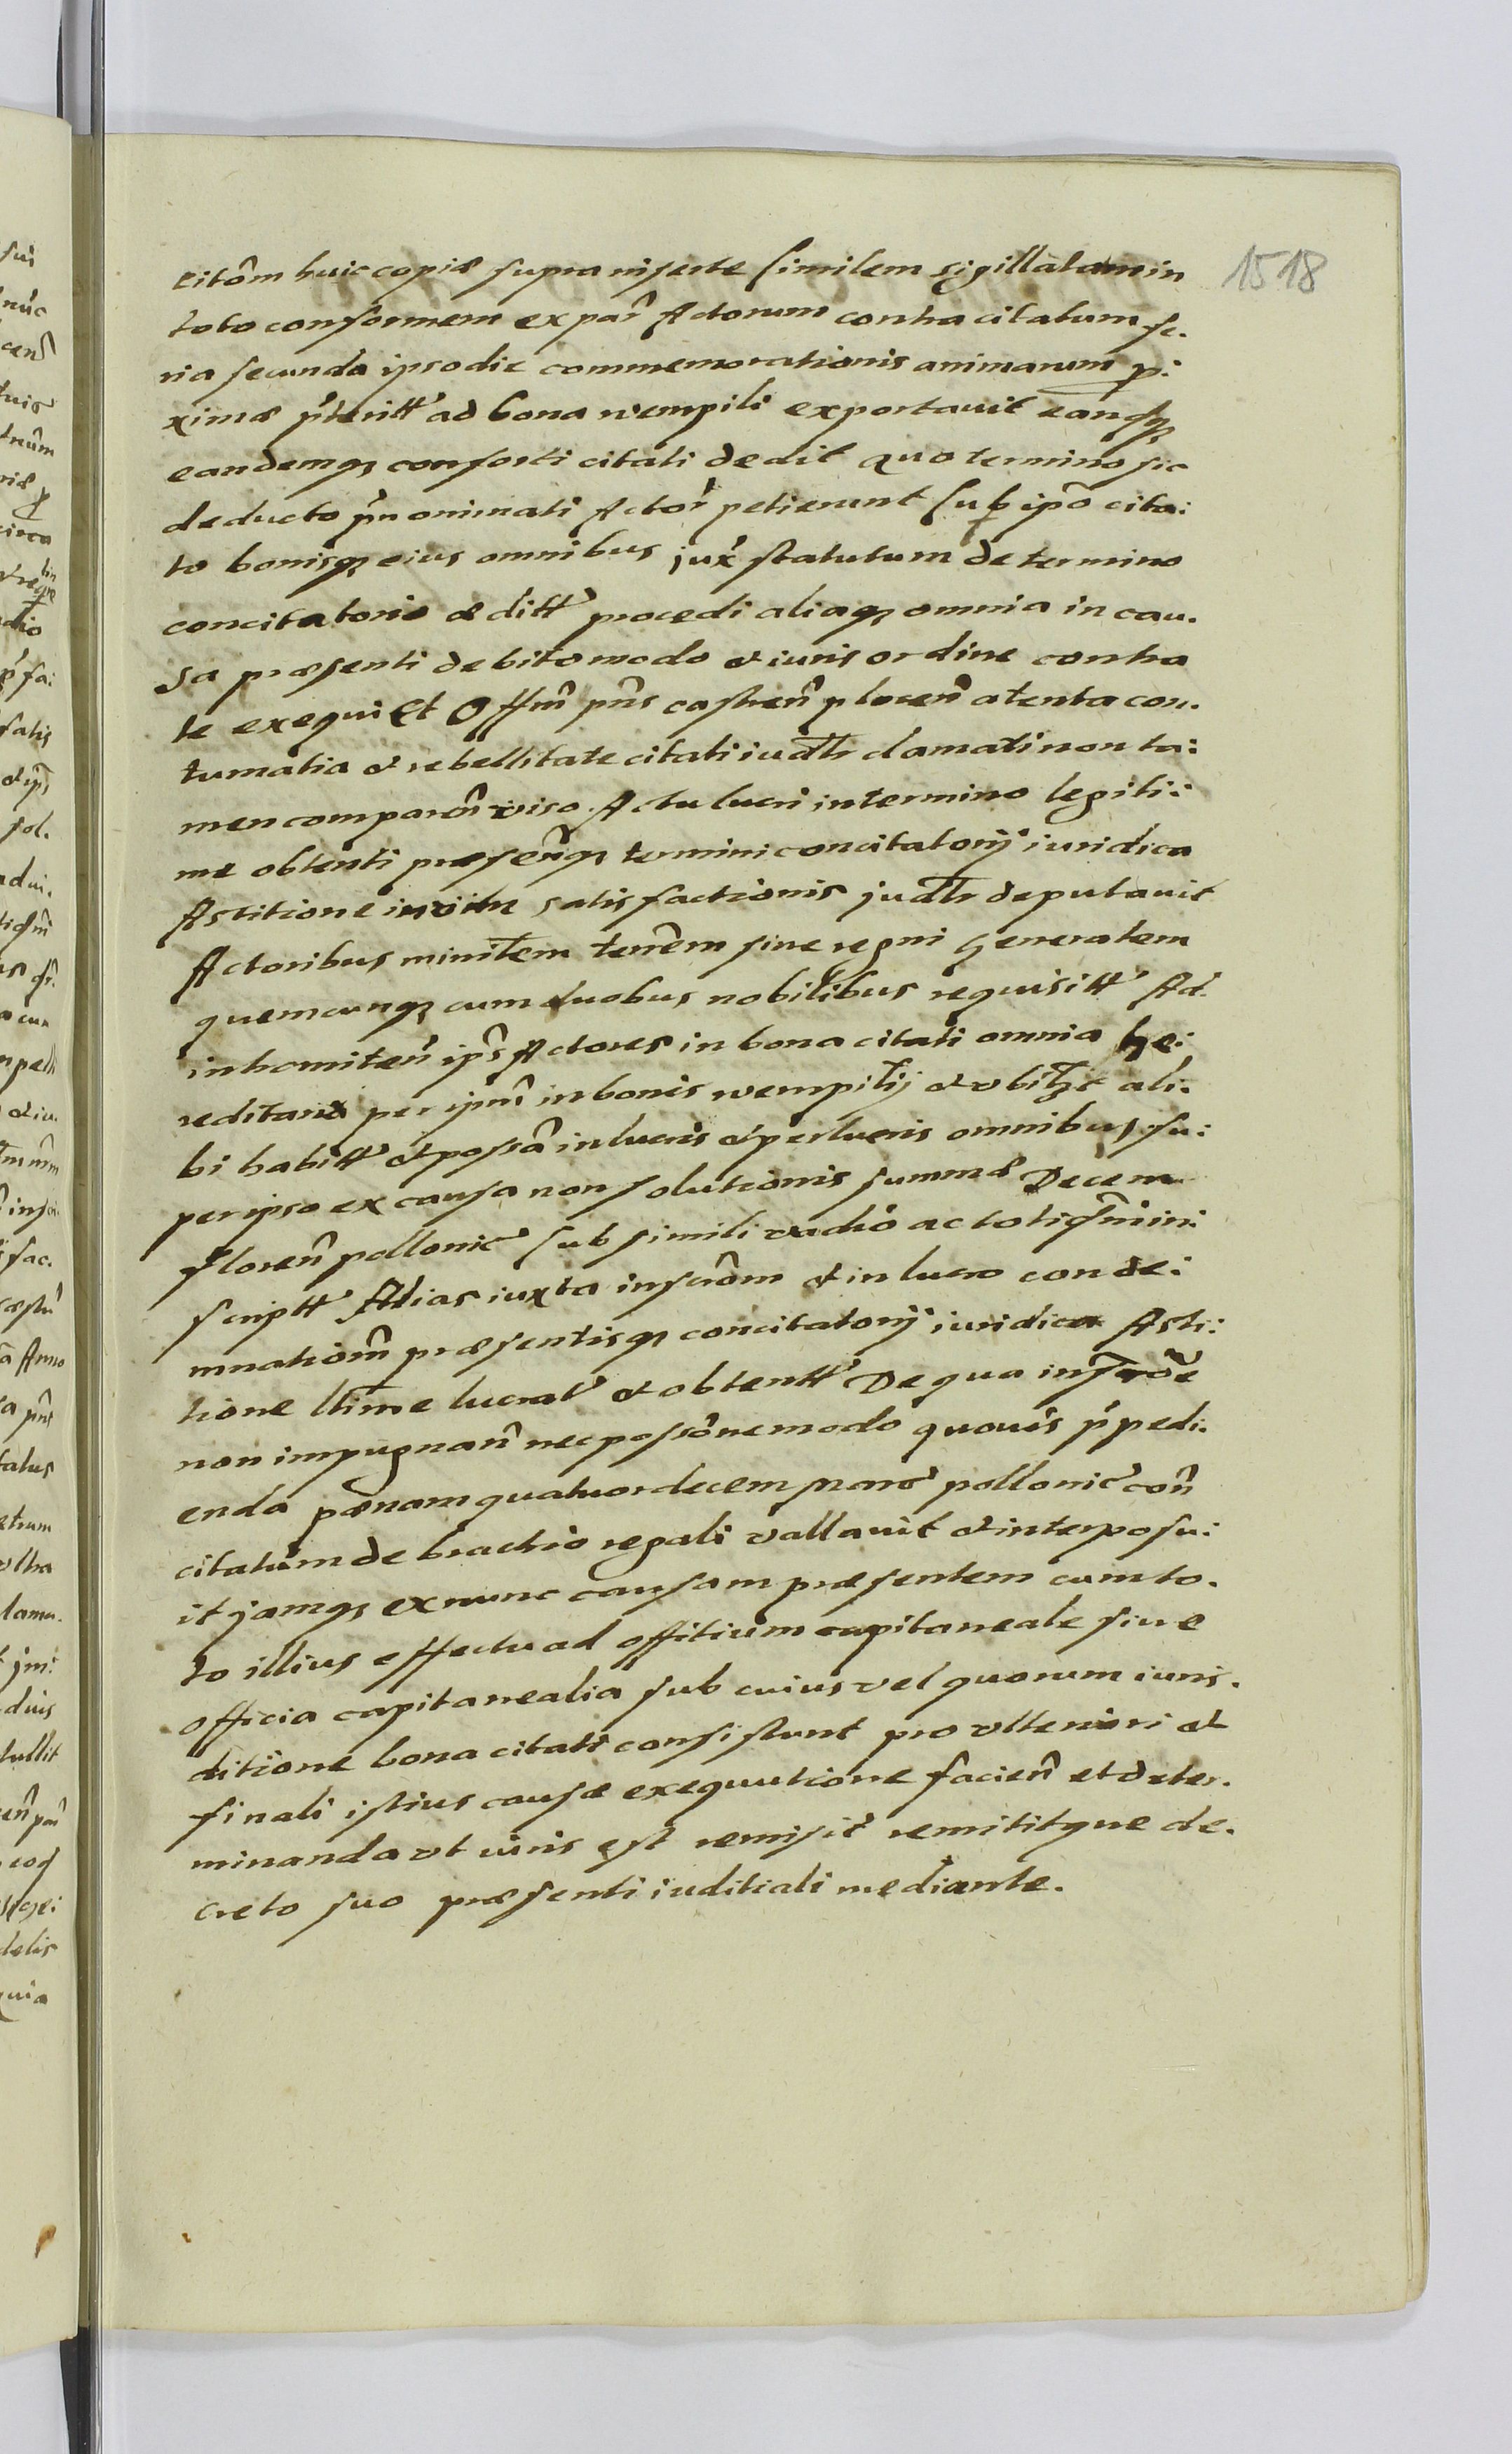 citôm huic copiæ supra inserte similem sigillatam in
1518
toto conformem ex parî Actorum contra citatum fe.
ria secunda ipso die commemorationis animarum p:
ximæ pteritt ad bona wempili exportavit eamqꝫ
eandemqꝫ consorti citati dedit quo termino sic
deducto pnominati Actor petierunt sup ipō cita:
to bonisqꝫ eius omnibus jux statutum de termino
concitatorio æditt procedi aliaqꝫ omnia in cau.
sa præsenti debito modo et iuris ordine contra
te exequi Et Offm pns castren plocen atenta con.
tumatia et rebellitate citati iudtr clamati non ta:
men comparen viso Actu lucri in termino legiti:
me obtenti præsenqꝫ termini concitatorij iuridica
Astitione in vim satisfactionis judtr deputavit
Actoribus ministem terrem sive regni generalem
quemcunqꝫ cum duobus nobilibus requisitt Ad
intromiten ips Actores in bona citati omnia he:
reditaria per ipm in bonis wempilij et vbilꝫ ali.
bi habitt et possa in lucris et perlucris omnibus su:
per ipso ex causa non solutionis summæ Decem
floren pollonic sub simili vadio ac totidm in:
scriptt Alias iuxta inscrom et in lucro conde:
mnationm præsentisqꝫ concitatorij iuridica Asti:
tione ltime lucrat et obtentt De qua introe
non impugnan nec possone modo quovis ppedi.
enda pænam quatuordecem marc pollonic con
citatum de brachio regali vallavit et interposu:
it jamqꝫ ex nunc causam præsentem cum to.
to illius effectu ad offitium capitaneale sive
officia capitanealia sub cuius vel quorum iuris.
ditione bona citati consistunt pro vlteriori et
finali istius causæ exequutione facien et deter.
minanda vt iuris est remisit remititque de.
creto suo præsenti iuditiali mediante.